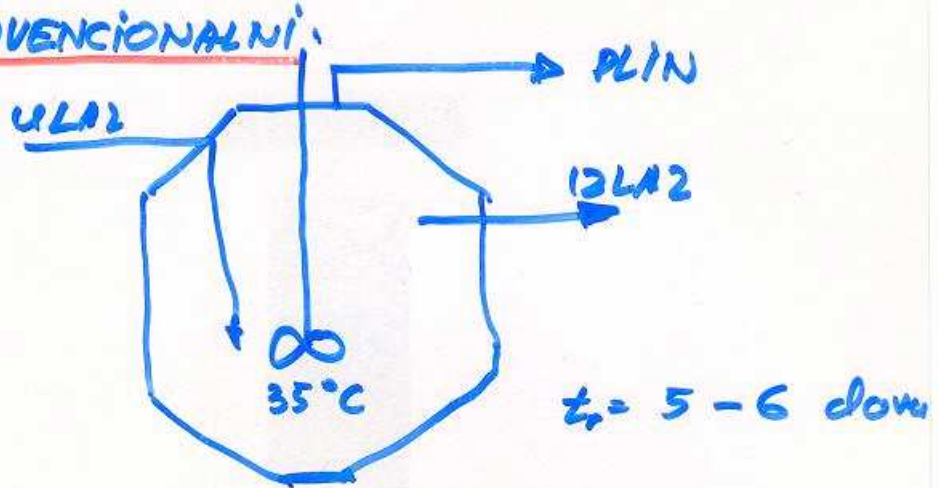 VENCIONALNI.
PLIN
ULAZ
IZLAZ
35°C
tr = 5 - 6 dana